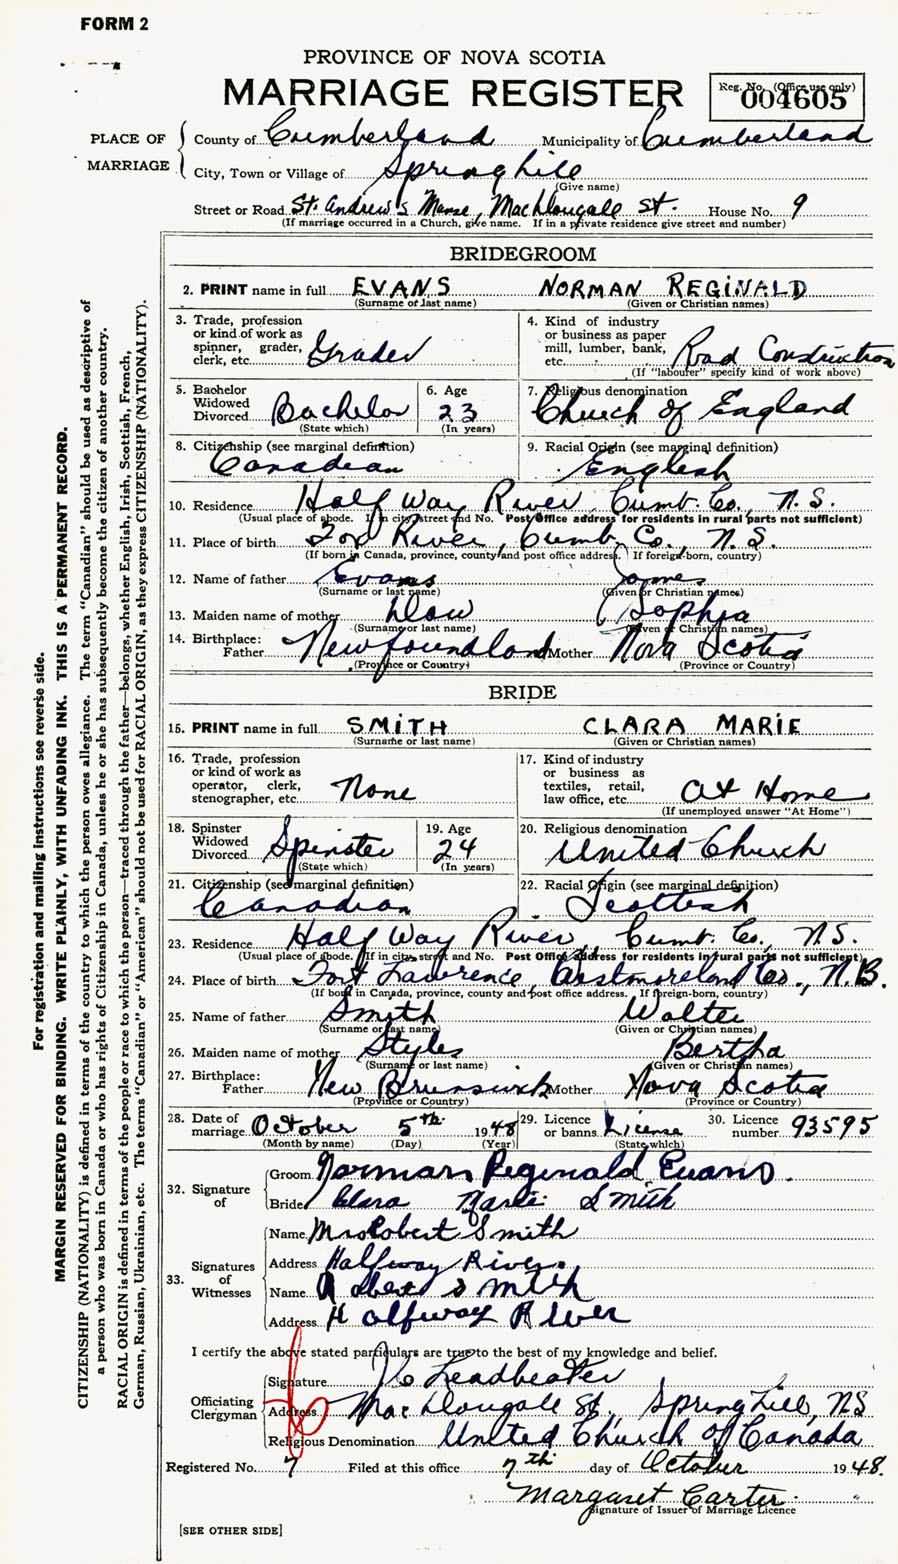 FORM 2
PROVINCE OF NOVA SCOTIA
MARRIAGE REGISTER
Reg. No. (Office use only)
004605
PLACE OF MARRIAGE
County of Cumberland Municipality of Cumberland
City, Town or Village of Springhill
(Give name)
Street or Road St. Andrew's Manse, MacDougale St. House No. 9
(If marriage occurred in a Church, give name. If in a private residence give street and number)
BRIDEGROOM
2. PRINT name in full EVANS NORMAN REGINALD
(Surname or last name) (Given or Christian names)
3. Trade, profession or kind of work as spinner, grader, clerk, etc. Grader
4. Kind of industry or business as paper mill, lumber, bank, etc. Road Construction
(If "labourer" specify kind of work above)
5. Bachelor Widowed Divorced Bachelor
(State which)
6. Age 23
(In years)
7. Religious denomination
Church of England
8. Citizenship (see marginal definition)
Canadian
9. Racial Origin (see marginal definition)
English
10. Residence Half Way River, Cumb. Co., N.S.
(Usual place of abode. If in city street and No. Post Office address for residents in rural parts not sufficient)
11. Place of birth Fox River, Cumb. Co., N.S.
(If born in Canada, province, county and post office address. If foreign-born, country)
12. Name of father Evans James
(Surname or last name) (Given or Christian names)
13. Maiden name of mother Dow Sophia
(Surname or last name) (Given or Christian names)
14. Birthplace: Father Newfoundland Mother Nova Scotia
(Province or Country) (Province or Country)
BRIDE
15. PRINT name in full SMITH CLARA MARIE
(Surname or last name) (Given or Christian names)
16. Trade, profession or kind of work as operator, clerk, stenographer, etc. None
17. Kind of industry or business as textiles, retail, law office, etc. At Home
(If unemployed answer "At Home")
18. Spinster Widowed Divorced Spinster
(State which)
19. Age 24
(In years)
20. Religious denomination
United Church
21. Citizenship (see marginal definition)
Canadian
22. Racial Origin (see marginal definition)
Scottish
23. Residence Half Way River, Cumb. Co., N.S.
(Usual place of abode. If in city street and No. Post Office address for residents in rural parts not sufficient)
24. Place of birth Fort Lawrence, Westmoreland Co., N.B.
(If born in Canada, province, county and post office address. If foreign-born, country)
25. Name of father Smith Walter
(Surname or last name) (Given or Christian names)
26. Maiden name of mother Styles Bertha
(Surname or last name) (Given or Christian names)
27. Birthplace: Father New Brunswick Mother Nova Scotia
(Province or Country) (Province or Country)
28. Date of marriage October 5th 1948
(Month by name) (Day) (Year)
29. Licence or banns License
(State which)
30. Licence number 93595
32. Signature of
Groom Norman Reginald Evans
Bride Clara Marie Smith
33. Signatures of Witnesses
Name Mrs Robert Smith
Address Halfway River
Name Robert Smith
Address Halfway River
I certify the above stated particulars are true to the best of my knowledge and belief.
Officiating Clergyman
Signature Leadbeater
Address MacDougale St. Spring Hill, NS
Religious Denomination United Church of Canada
Registered No. 7 Filed at this office 7th day of October 1948.
Margaret Carter
Signature of Issuer of Marriage Licence
[SEE OTHER SIDE]
For registration and mailing instructions see reverse side.
MARGIN RESERVED FOR BINDING. WRITE PLAINLY, WITH UNFADING INK. THIS IS A PERMANENT RECORD.
CITIZENSHIP (NATIONALITY) is defined in terms of the country to which the person owes allegiance. The term "Canadian" should be used as descriptive of
a person who was born in Canada or who has rights of Citizenship in Canada, unless he or she has subsequently become the citizen of another country.
RACIAL ORIGIN is defined in terms of the people or race to which the person—traced through the father—belongs, whether English, Irish, Scottish, French,
German, Russian, Ukrainian, etc. The terms "Canadian" or "American" should not be used for RACIAL ORIGIN, as they express CITIZENSHIP (NATIONALITY).